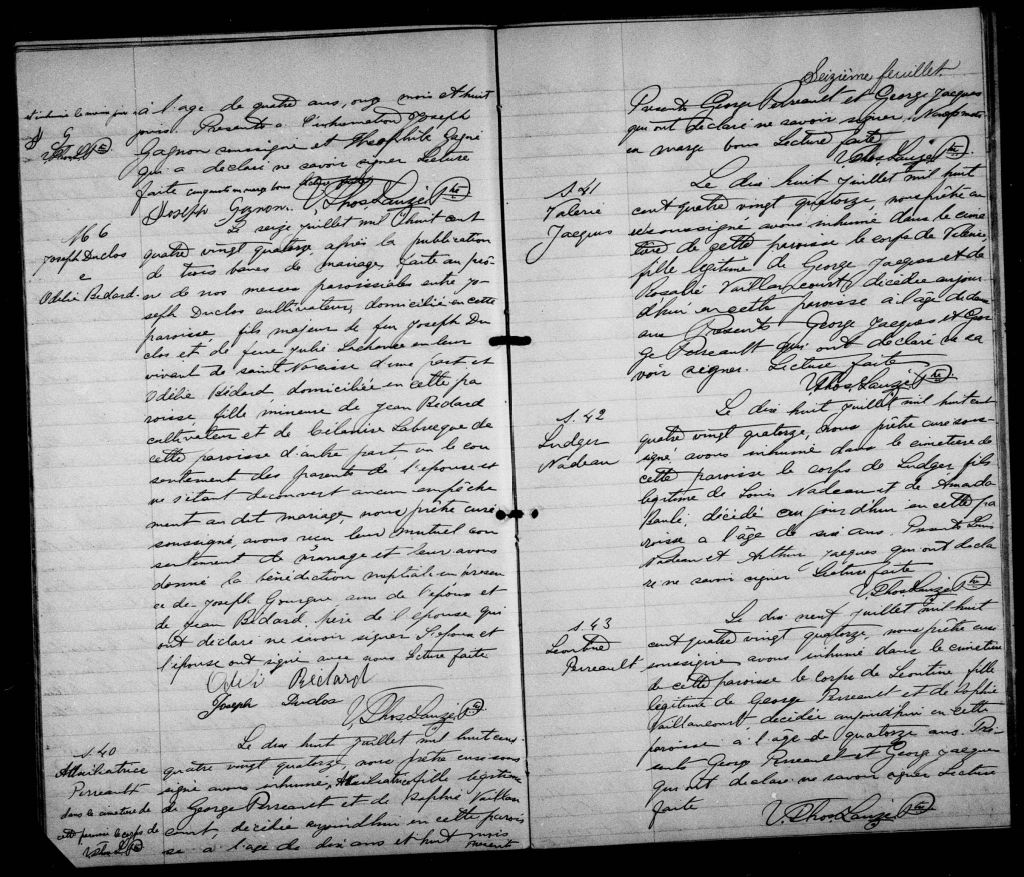 à l'age de quatre ans, onze mois et huit
jours. Presents a l'inhumation Joseph
Gagnon soussigné et Théophile Gagné
qui a declaré ne savoir signer Lecture
faite
Joseph Gagnon. V. Thos Lauzé Ptre
M 6
Joseph Duclos
e
Odélie Bédard.
Le seize juillet mil huit cent
quatre vingt quatorze, après la publication
de trois bancs de mariage, faite au prô-
ne de nos messes paroissiales entre Jo-
seph Duclos cultivateur, domicilié en cette
paroisse, fils majeur de feu Joseph Du
clos et de feue Julie Lachance en leur
vivant de saint d'une part et
Odélie Bédard domiciliée en cette pa
roisse fille mineure de Jean Bédard
cultivateur et de Labrecque de
cette paroisse d'autre part vu le con
sentement des parents de l'epouse et
ne s'étant decouvert aucun empêche
ment au dit mariage, nous prêtre curé
soussigné, avons reçu leur mutuel con
sentement de mariage et leur avons
donné la bénédiction nuptiale en presen
ce de Joseph Gourgue ami de l'epoux et
de Jean Bédard, père de l'epouse qui
ont déclaré ne savoir signer L'epoux et
l'épouse ont signé avec nous Lecture faite
Odéli Bédard
Joseph Duclos
V. Thos Lauzé Ptre
S. 40
Perreault
dans le cimetière de
cette paroisse le corps de
Le dix huit juillet mil huit cent
quatre vingt quatorze, nous prêtre curé sous
signé avons inhumé, fille legitime
de George Perreault et de Sophie Vaillan
court, décédée aujourd'hui en cette parois
se à l'age de dix ans et huit mois
Presents
Seizième feuillet.
Presents George Perreault et George Jacques
qui ont declaré ne savoir signer.
en marge bons Lecture faite
V. Thos Lauzé Ptre
S. 41
Valérie
Jacques
Le dix huit juillet mil huit
cent quatre vingt quatorze, nous prêtre cu
ré soussigné, avons inhumé dans le cime
tière de cette paroisse le corps de Valérie,
fille legitime de George Jacques et de
Rosalie Vaillancourt, décédée aujour
d'hui en cette paroisse à l'âge de
ans Presents George Jacques et Geor
ge Perreault qui ont declaré ne sa
voir signer. Lecture faite
V. Thos Lauzé Ptre
S. 42
Ludger
Nadeau
Le dix huit juillet mil huit cent
quatre vingt quatorze, nous prêtre curé sous
signé avons inhumé dans le cimetiere de
cette paroisse le corps de Ludger fils
legitime de Louis Nadeau et de Amanda
Paulé, décédé aujourd'hui en cette pa
roisse à l'âge de six ans. Presents Louis
Nadeau et Arthur Jacques qui ont decla
ré ne savoir signer Lecture faite
V. Thos Lauzé Ptre
S. 43
Léontine
Perreault
Le dix neuf juillet mil huit
cent quatre vingt quatorze, nous prêtre curé
soussigné avons inhumé dans le cimetiere
de cette paroisse le corps de Léontine fille
legitime de George Perreault et de Sophie
Vaillancourt decédée aujourd'hui en cette
paroisse à l'age de quatorze ans. Pré
sents George Perreault et George Jacques
qui ont declaré ne savoir signer Lecture
faite
V. Thos Lauzé Ptre